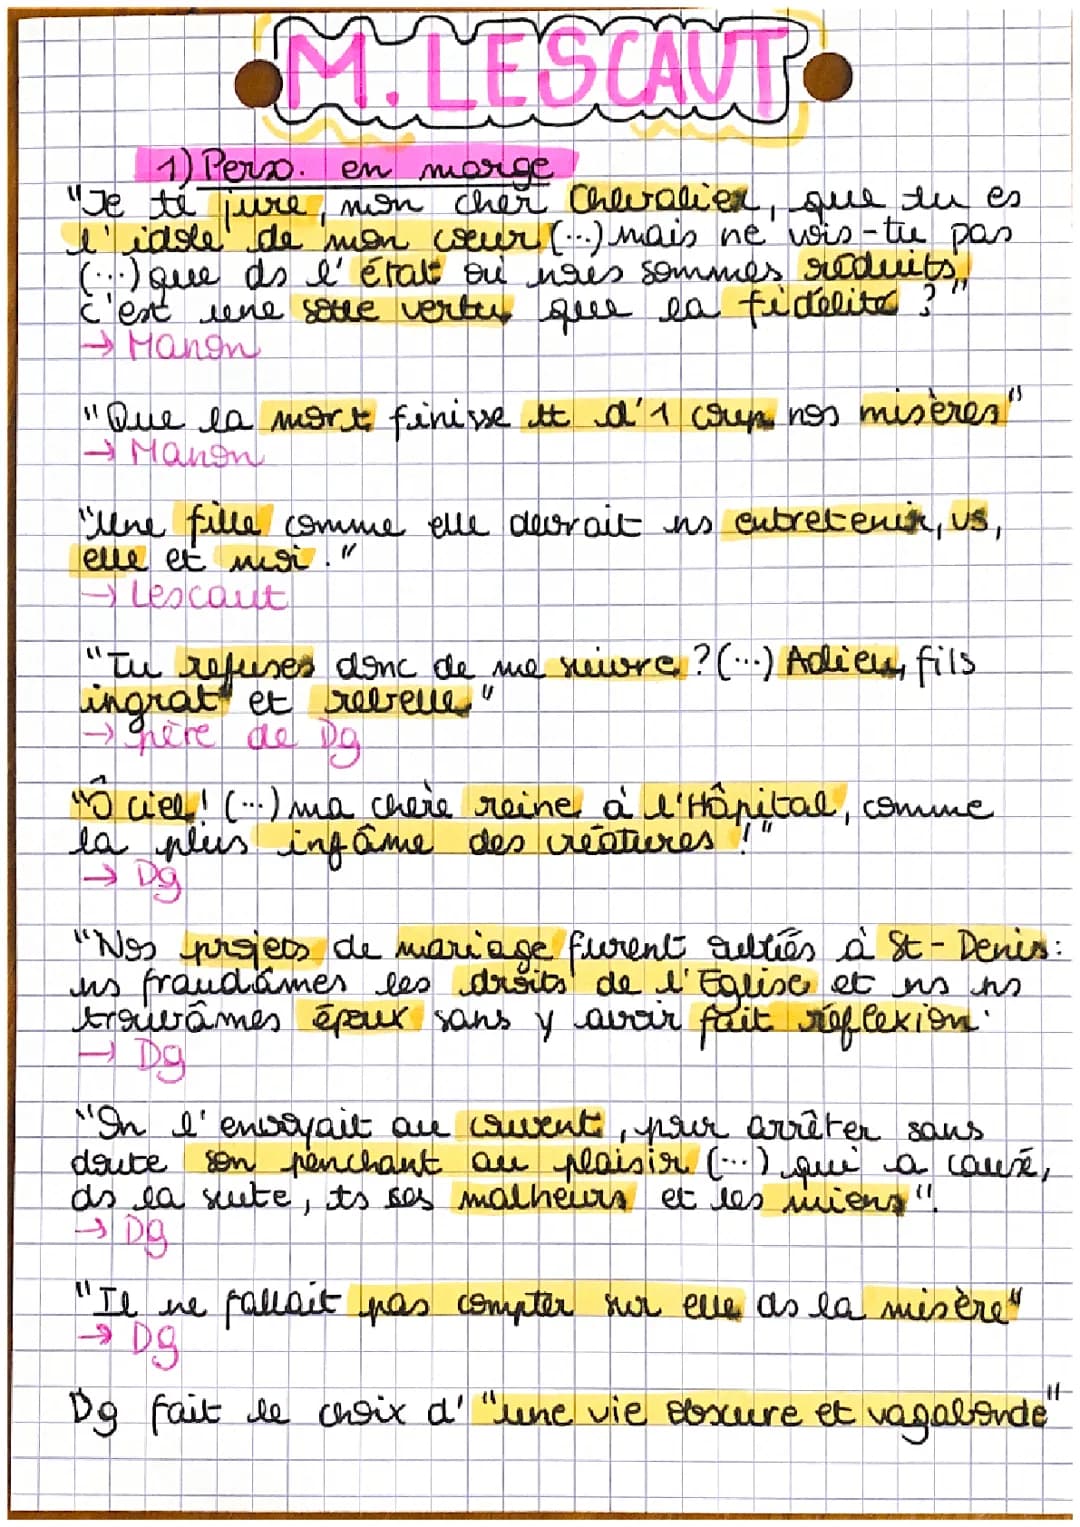 M. LESCAUT
1) Perso. en marge
"Je te jure, mon cher Chevalier, que tu es
l'idole de mon cœur (...) mais ne vois-tu pas
(...) que ds l'état où nous sommes réduits,
c'est une sotte vertu que la fidélité ?"
→ Manon
"Que la mort finisse tt d'1 coup nos misères"
→ Manon
"Une fille comme elle devrait ns entretenir, vs,
elle et moi."
→ Lescaut
"Tu refuses donc de me suivre ? (...) Adieu, fils
ingrat et rebelle"
→ père de Dg
"Ô ciel ! (...) ma chère reine à l'Hôpital, comme
la plus infâme des créatures !"
→ Dg
"Nos projets de mariage furent oubliés à St-Denis :
ns fraudâmes les droits de l'Eglise et ns ns
trouvâmes époux sans y avoir fait réflexion.
→ Dg
"On l'envoyait au couvent, pour arrêter sans
doute son penchant au plaisir (...) qui a causé,
ds la suite, ts ses malheurs et les miens".
→ Dg
"Il ne fallait pas compter sur elle ds la misère"
→ Dg
Dg fait le choix d' "une vie obscure et vagabonde"